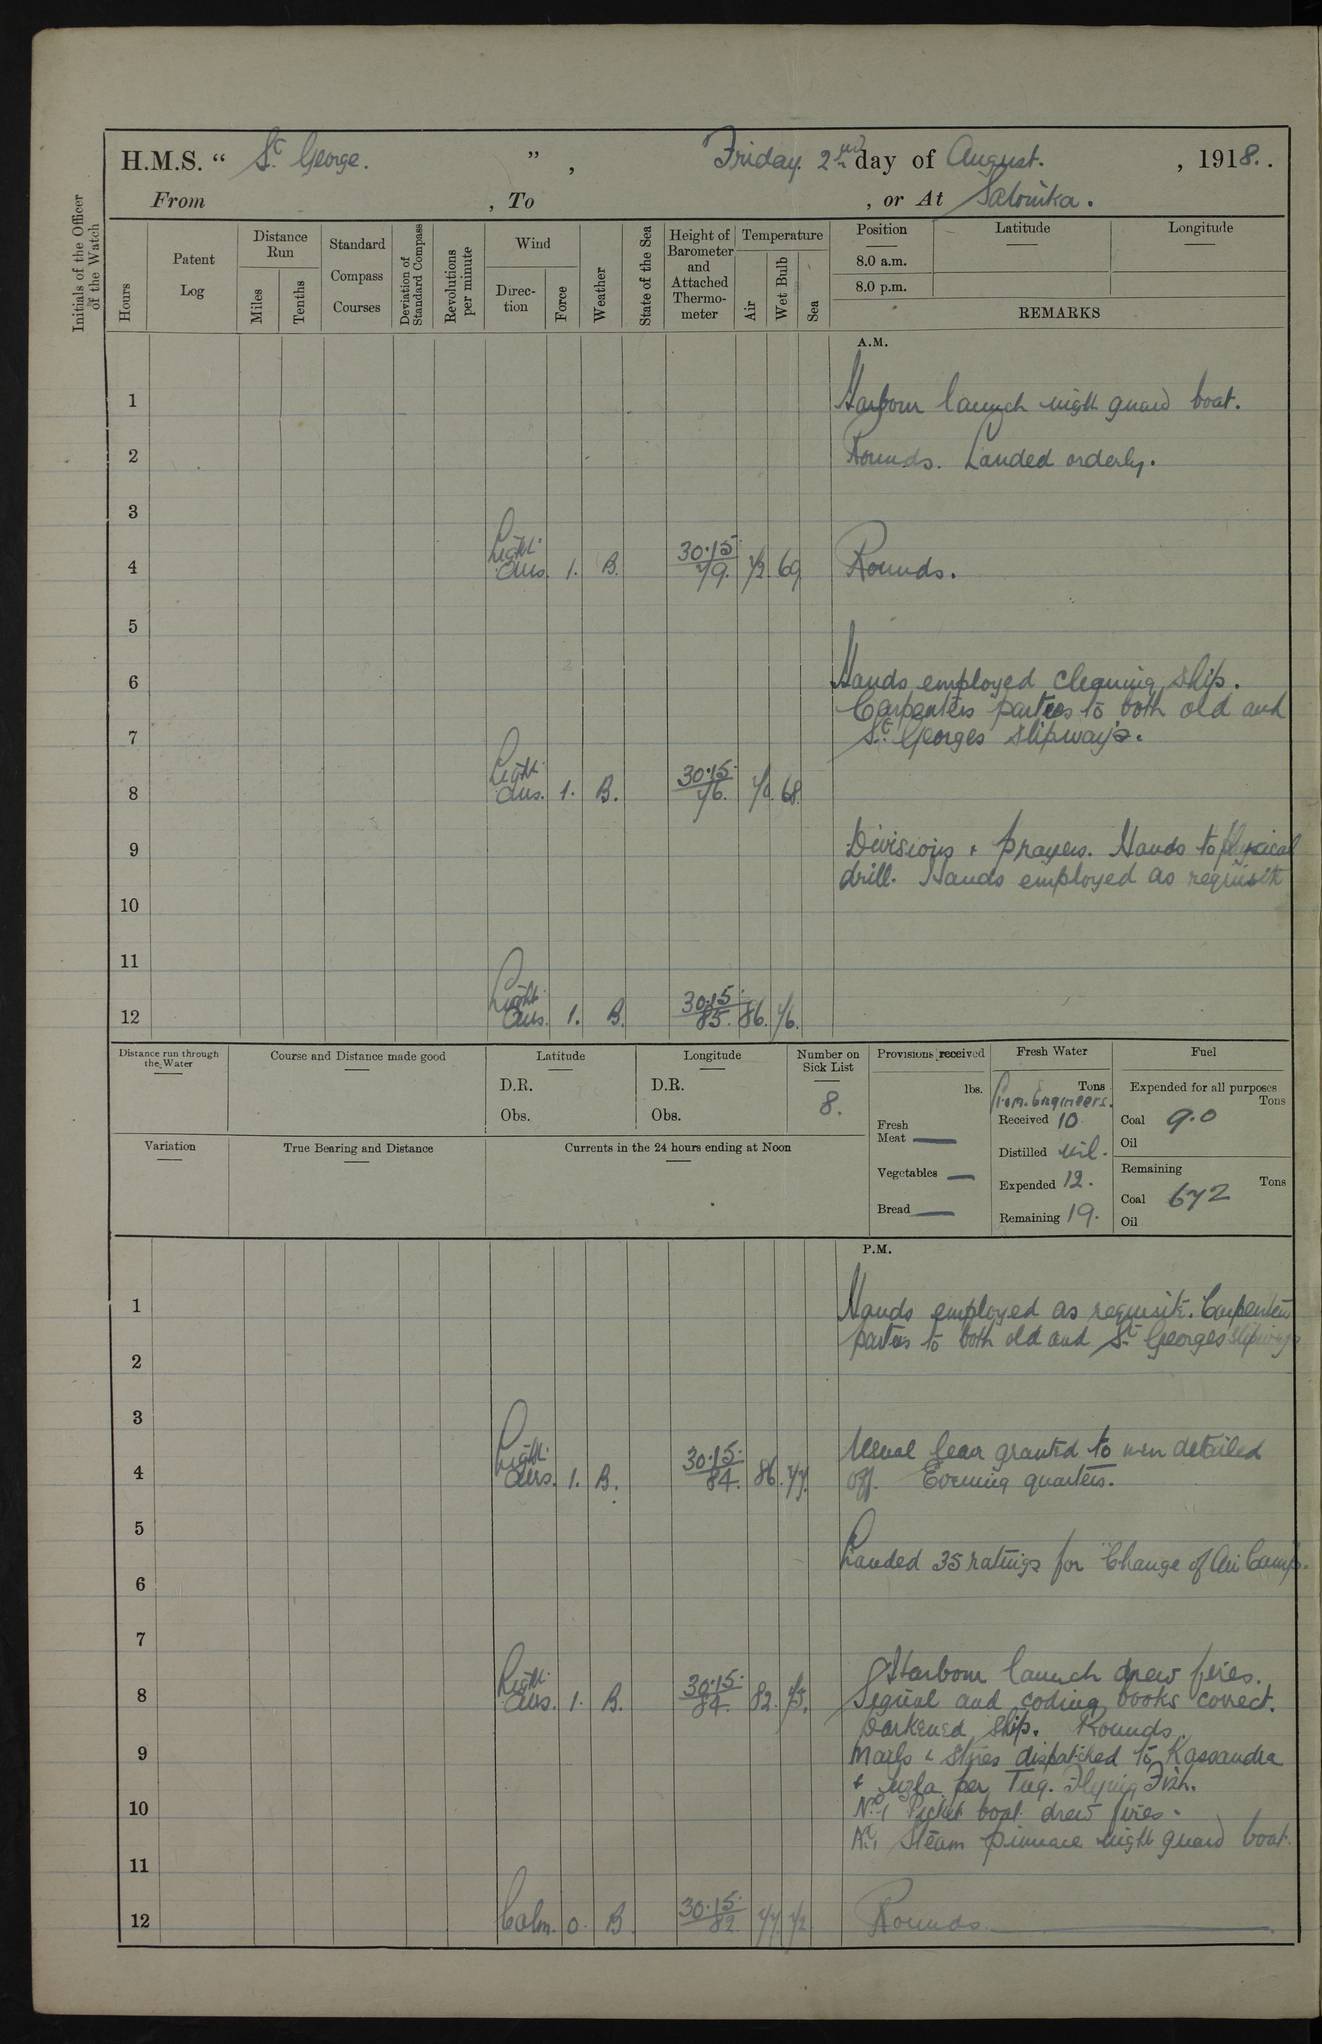 H.M.S. “ St George. ” , Friday. 2nd day of August. , 1918.
From , To , or At Salonika.
Initials of the Officer of the Watch
Hours
Patent Log
Distance Run
Miles
Tenths
Standard Compass Courses
Deviation of Standard Compass
Revolutions per minute
Wind
Direction
Force
Weather
State of the Sea
Height of Barometer and Attached Thermometer
Temperature
Air
Wet Bulb
Sea
Position Latitude Longitude
8.0 a.m.
8.0 p.m.
REMARKS
A.M.
1 Harbour launch night guard boat.
2 Rounds. Landed orderly.
3
4 Light airs. 1. B. 30.15 79. 72. 69 Rounds.
5
6 Hands employed cleaning ship.
Carpenters parties to both old and
7 St Georges slipways.
8 Light airs. 1. B. 30.15 76. 70. 68.
9 Divisions + prayers. Hands to physical
drill. Hands employed as requisite
10
11
12 Light airs. 1. B. 30.15 85. 86. 76.
Distance run through the Water
Course and Distance made good
Latitude
D.R.
Obs.
Longitude
D.R.
Obs.
Number on Sick List
8.
Provisions received
lbs.
Fresh Meat —
Vegetables —
Bread —
Fresh Water
Tons
From Engineers.
Received 10
Distilled nil.
Expended 12.
Remaining 19.
Fuel
Expended for all purposes
Tons
Coal 9.0
Oil
Remaining
Tons
Coal 672
Oil
Variation
True Bearing and Distance
Currents in the 24 hours ending at Noon
P.M.
1 Hands employed as requisite. Carpenters
parties to both old and St Georges slipways
2
3
Usual leave granted to men detailed
4 Light airs. 1. B. 30.15. 84. 86. 77. off. Evening quarters.
5
Landed 35 ratings for "Change of Air Camp".
6
7
Harbour launch drew fires.
8 Light airs. 1. B. 30.15. 84. 82. 75. Signal and coding books correct.
Darkened ship. Rounds.
9 Mails & stores dispatched to Kassandra
+ per Tug. Flying Fish.
10 No 1 Picket boat drew fires.
No 1 Steam pinnace night guard boat.
11
12 Calm. 0. B. 30.15. 82. 77. 72 Rounds.